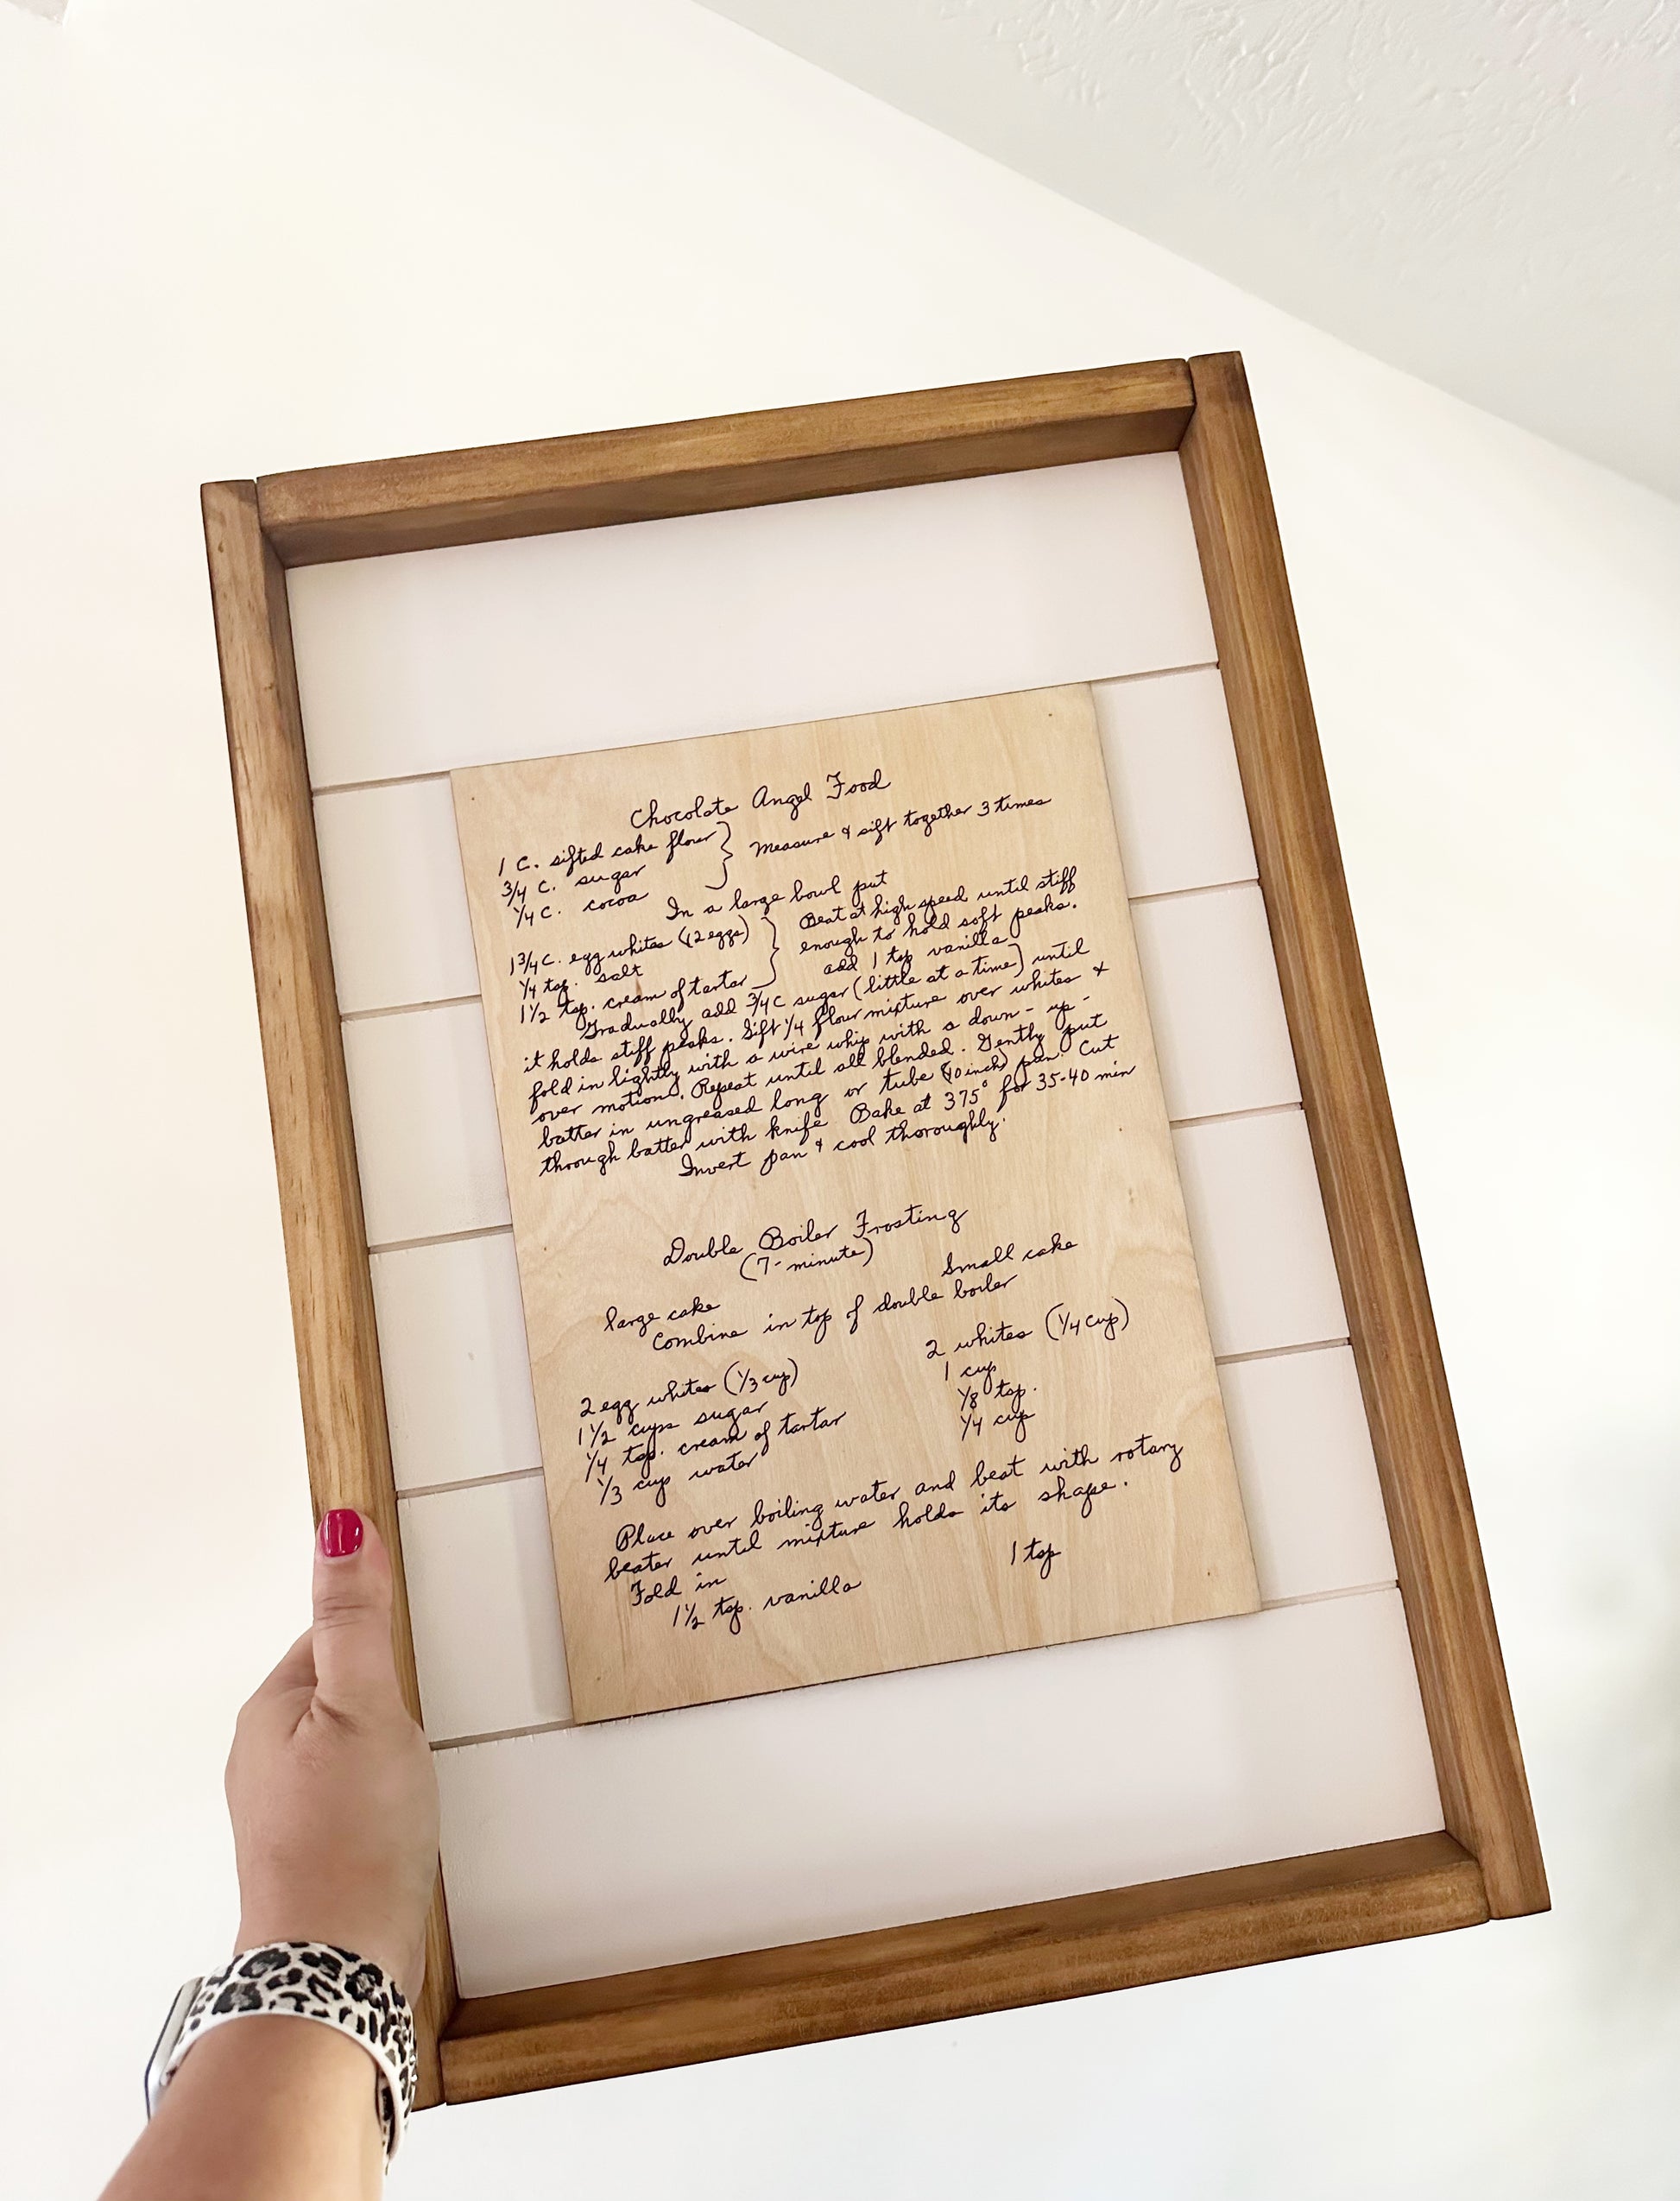 Chocolate Angel Food
1 C. sifted cake flour } Measure & sift together 3 times
3/4 C. sugar
1/4 C. cocoa
In a large bowl put
1 3/4 C. egg whites (12 eggs) } Beat at high speed until stiff
1/4 tsp. salt enough to hold soft peaks.
1 1/2 tsp. cream of tartar add 1 tsp vanilla
Gradually add 3/4 C sugar (little at a time) until
it holds stiff peaks. Sift 1/4 flour mixture over whites &
fold in lightly with a wire whip with a down - up -
over motion. Repeat until all blended. Gently put
batter in ungreased long or tube (10 inch) pan. Cut
through batter with knife Bake at 375° for 35-40 min
Invert pan & cool thoroughly.
Double Boiler Frosting
(7-minute)
large cake Small cake
Combine in top of double boiler
2 egg whites (1/3 cup) 2 whites (1/4 cup)
1 1/2 cups sugar 1 cup
1/4 tsp. cream of tartar 1/8 tsp.
1/3 cup water 1/4 cup
Place over boiling water and beat with rotary
beater until mixture holds its shape.
Fold in
1 1/2 tsp. vanilla 1 tsp